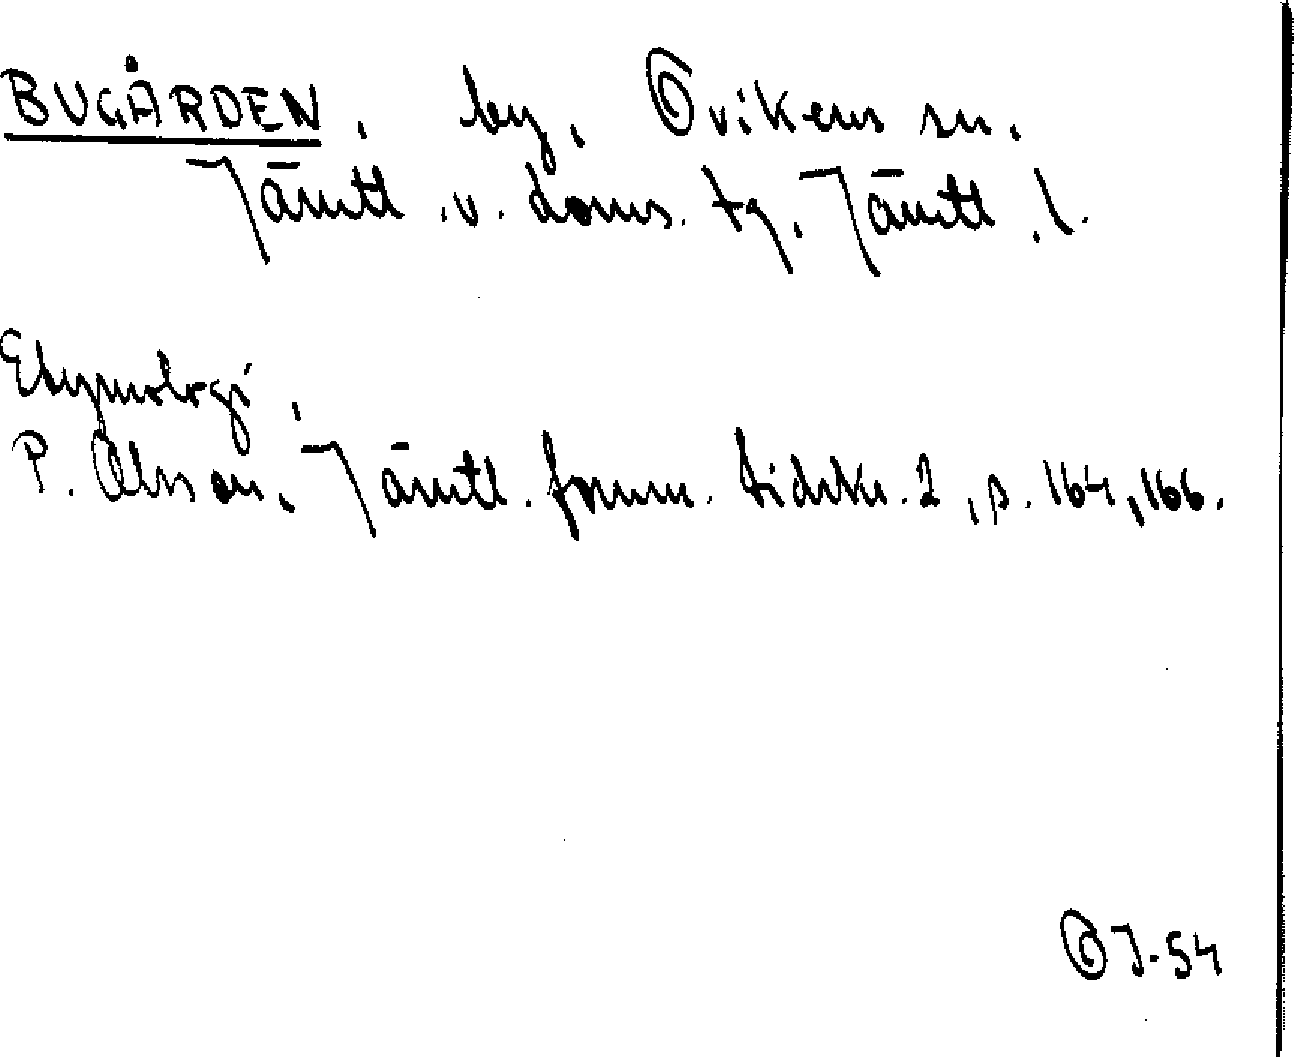 BUGÅRDEN, by, Ovikens sn.
Jämtl. v. doms. tg. Jämtl. l.
Etymologi,
P. Olsson, Jämtl. fornm. tidskr. 2, s. 164, 166.
OJ-54